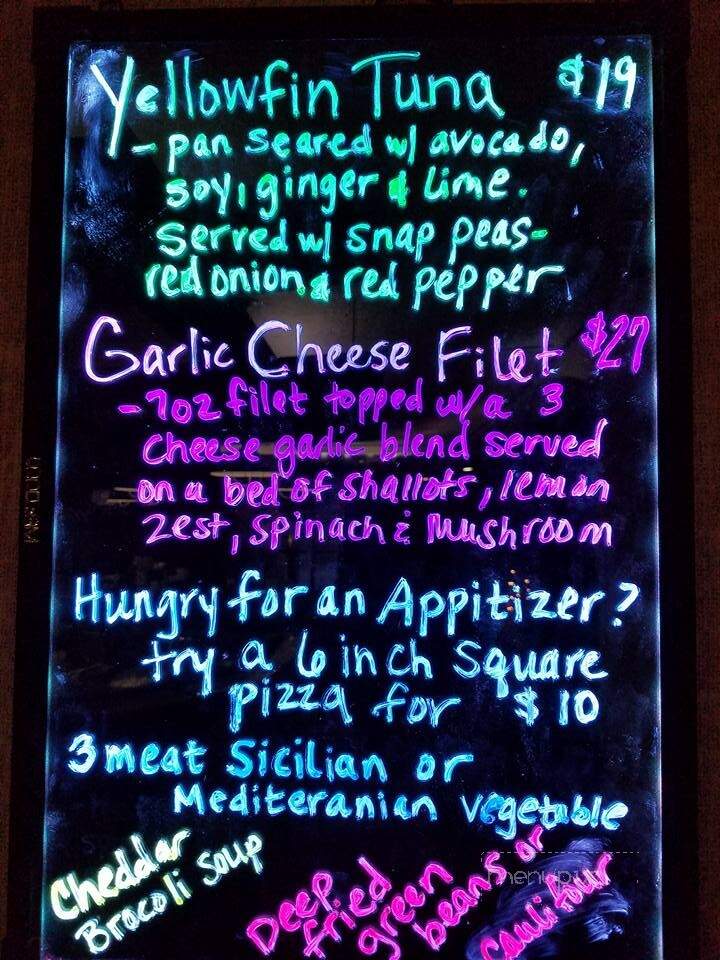 Yellowfin Tuna $19
- pan seared w/ avocado,
soy, ginger & lime.
Served w/ snap peas-
red onion & red pepper
Garlic Cheese Filet $27
-7oz filet topped w/a 3
cheese garlic blend served
on a bed of shallots, lemon
zest, spinach & mushroom
Hungry for an Appitizer?
try a 6 inch square
pizza for $10
3 meat Sicilian or
Mediteranian vegetable
Cheddar
Brocoli soup
Deep
fried
green
beans or